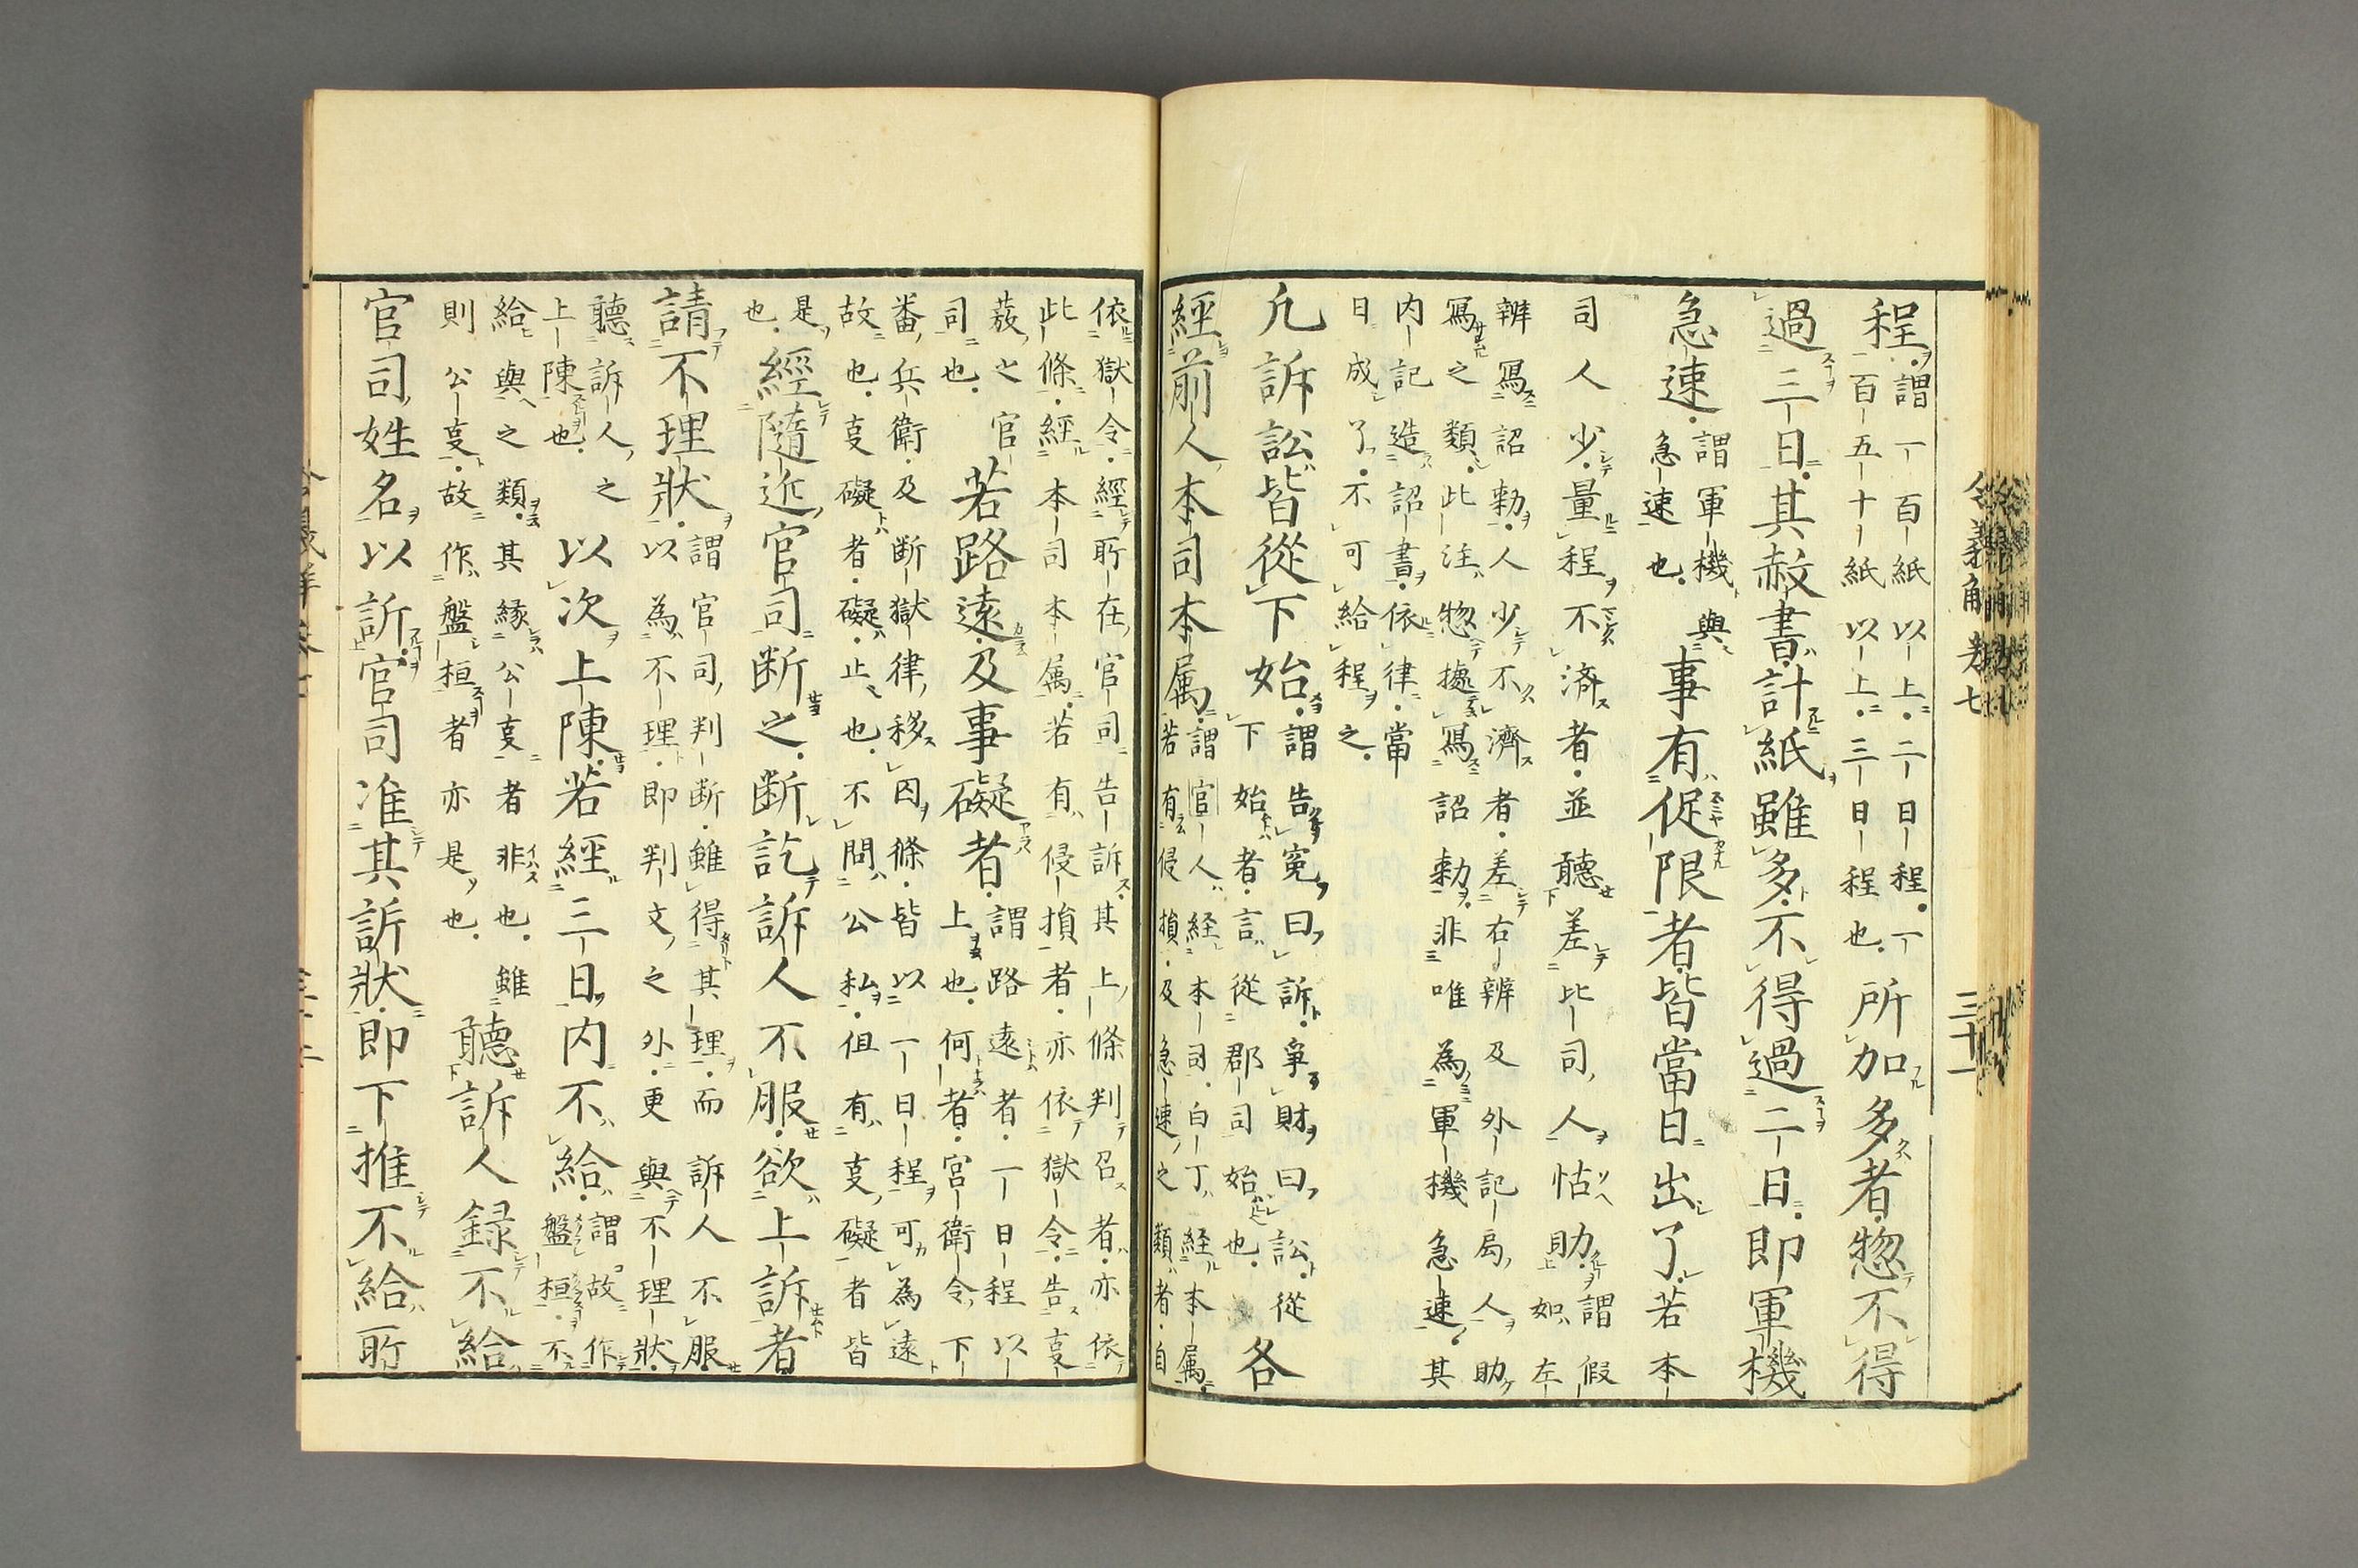 令義解巻七
三十一
程
謂一百紙以上二日程一
百五十紙以上三日程也
所加多者惣不得
過三日其赦書計紙雖多不得過二日即軍機
急速
謂軍機與
急速也
事有促限者皆當日出了若本
司人少量程不済者並聽差比司人怗助
謂假
如左
辨寫詔勅人少不濟者差右辨及外記局人助
寫之類此注惣據寫詔勅非唯為軍機急速其
内記造詔書依律當
日成了不可給程之
凡訴訟皆從下始
謂告寃曰訴爭財曰訟從
下始者言從郡司始也
各
經前人本司本属
謂官人経本司白丁経本属
若有侵損及急速之類者自
依獄令經所在官司告訴其上條判召者亦依
此條經本司本属若有侵損者亦依獄令告㕝
發之官
司也
若路遠及事礙者
謂路遠者一日程以
上也何者宮衛令下
番兵衛及断獄律移囚條皆以一日程可為遠
故也㕝礙者礙止也不問公私但有㕝礙者皆
是
也
經隨近官司断之断訖訴人不服欲上訴者
請不理狀
謂官司判断雖得其理而訴人不服
以為不理即判文之外更與不理狀
聽訴人之
上陳也
以次上陳若經三日内不給
謂故作
盤桓不
給與之類其縁公㕝者非也雖
則公㕝故作盤桓者亦是也
聽訴人録不給
官司姓名以訴官司准其訴狀即下推不給所